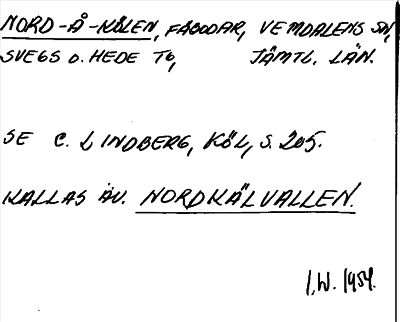 NORD-Å-KÖLEN, FÄBODAR, VEMDALENS SN,
SVEGS O. HEDE TG, JÄMTL. LÄN.
SE C. LINDBERG, KÖL, S. 205.
KALLAS ÄV. NORDKÄLVALLEN.
I.W. 1954.